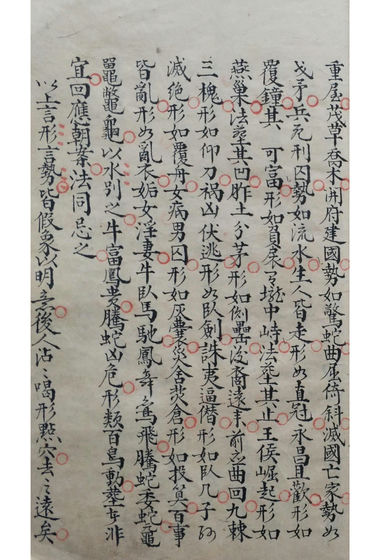 重屋茂草喬木開府建國勢如驚蛇曲屈倚斜滅國亡家勢如
戈矛兵死刑囚勢如流水生人皆走形如直冠永昌且歡形如
覆鐘其 可富形如負扆有壠中峙法塟其止王侯崛起形如
燕巢法塟其凹胙土分茅形如倒罍後裔遠來前之曲回九棘
三槐形如仰刀禍凶伏逃形如臥劍誅夷逼僭形如臥几子孫
滅絕形如覆舟女病男囚形如灰囊災舍焚倉形如投算百事
皆亂形如亂衣妬女淫妻牛臥馬馳鳳舞鸞飛騰蛇委蛇黿
鼉鱉龜以水別之牛富鳳貴騰蛇凶危形類百鳥動塟皆非
宜回應朝案法同忌之
以上言形言勢皆假象以明意後人沾〻喝形點穴去之遠矣